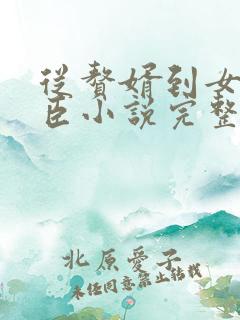 從贅婿到女
臣小說完整
北原愛子
未经同意禁止转载